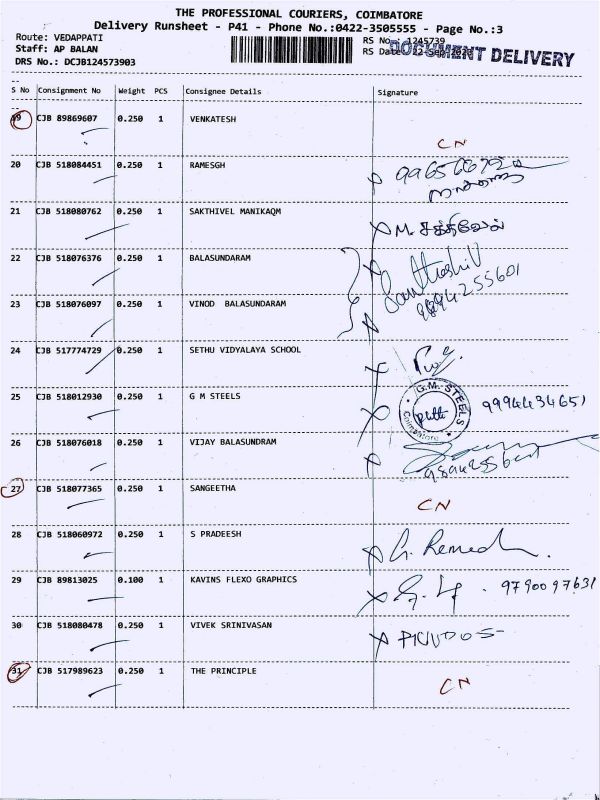 THE PROFESSIONAL COURIERS, COIMBATORE
Delivery Runsheet - P41 - Phone No.:0422-3505555 - Page No.:3
Route: VEDAPPATI
Staff: AP BALAN
DRS No.: DCJB124573903
RS No.: 1245739
RS Date: 22-Sep
DOCUMENT DELIVERY
S No Consignment No Weight PCS Consignee Details Signature
19 CJB 89869607 0.250 1 VENKATESH CN
20 CJB 518084451 0.250 1 RAMESGH
21 CJB 518080762 0.250 1 SAKTHIVEL MANIKAQM M. சக்திவேல்
22 CJB 518076376 0.250 1 BALASUNDARAM
9894255601
23 CJB 518076097 0.250 1 VINOD BALASUNDARAM
24 CJB 517774729 0.250 1 SETHU VIDYALAYA SCHOOL
25 CJB 518012930 0.250 1 G M STEELS G.M. STEELS Coimbatore 9994434651
26 CJB 518076018 0.250 1 VIJAY BALASUNDRAM
27 CJB 518077365 0.250 1 SANGEETHA CN
28 CJB 518060972 0.250 1 S PRADEESH
29 CJB 89813025 0.100 1 KAVINS FLEXO GRAPHICS 9790097631
30 CJB 518080478 0.250 1 VIVEK SRINIVASAN
31 CJB 517989623 0.250 1 THE PRINCIPLE CN